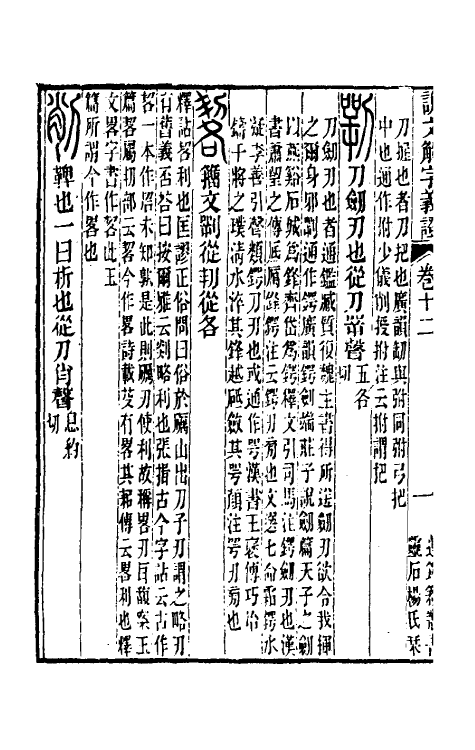 說文解字義證 卷十二 一
靈石楊氏栞
刀握也者刀把也廣韻㓡與弣同弣弓把
中也通作拊少儀削授拊注云拊謂把
剬刀劒刃也從刀咢聲 五各切
刀劒刃也者通鑑臧質復魏主書得所送劒刃欲令我揮
之爾身邪㓵通作鍔廣韻鍔劒端莊子說劒篇天子之劒
以燕谿石城爲鋒齊岱爲鍔釋文引司馬注鍔劒刃也漢
書蕭望之傳底厲鋒鍔注云鍔刃旁也文選七命霜鍔水
凝李善引聲類鍔刀刃也或通作咢漢書王襃傳巧冶
鑄干將之璞淸水淬其鋒越砥斂其咢顏注咢刃旁也
籒文㓵從㓞從各
釋詁畧利也匡謬正俗問曰俗於厲山出刀子刃謂之略刃
有舊義否荅曰按爾雅云剡略利也張揖古今字詁云古作
䂮一本作㓷未知孰是此則礪刃使利故稱畧刃百馥案玉
篇䂮屬㓞部云䂮今作畧詩載芟有畧其耜傳云畧利也釋
文畧字書作䂮此玉
篇所謂今作畧也
削鞞也一曰析也從刀肖聲 息約切